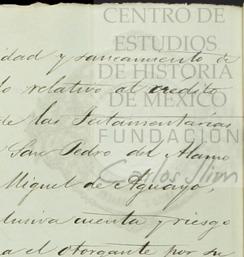 CENTRO DE
ESTUDIOS
DE HISTORIA
DE MÉXICO
FUNDACIÓN
Carlos Slim
idad y saneamiento de
lo relativo al credito
de las Testamentarias
San Pedro del Alamo
Miguel de Aguayo,
lusiva cuenta y riesgo
a el otorgante por su